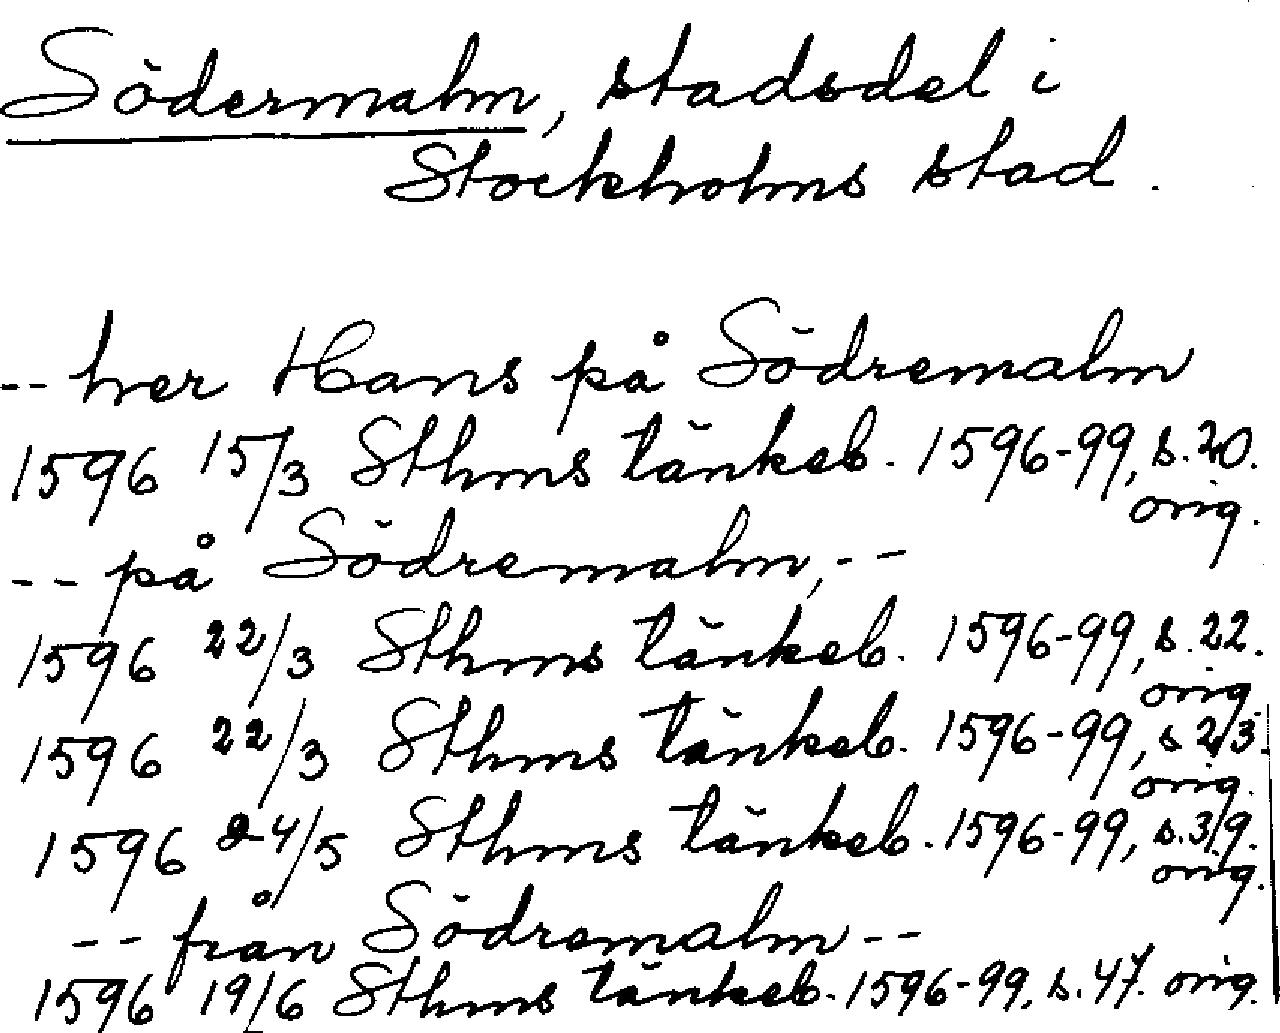 Södermalm, stadsdel i
Stockholms stad.
-- her Hans på Södremalm
1596 15/3 Sthms tänkeb. 1596-99, s. 20.
orig.
-- på Södremalm, --
1596 22/3 Sthms tänkeb. 1596-99, s. 22.
orig.
1596 22/3 Sthms tänkeb. 1596-99, s 23.
orig.
1596 24/5 Sthms tänkeb. 1596-99, s. 39.
orig.
-- från Södremalm --
1596 19/6 Sthms tänkeb. 1596-99, s. 47. orig.